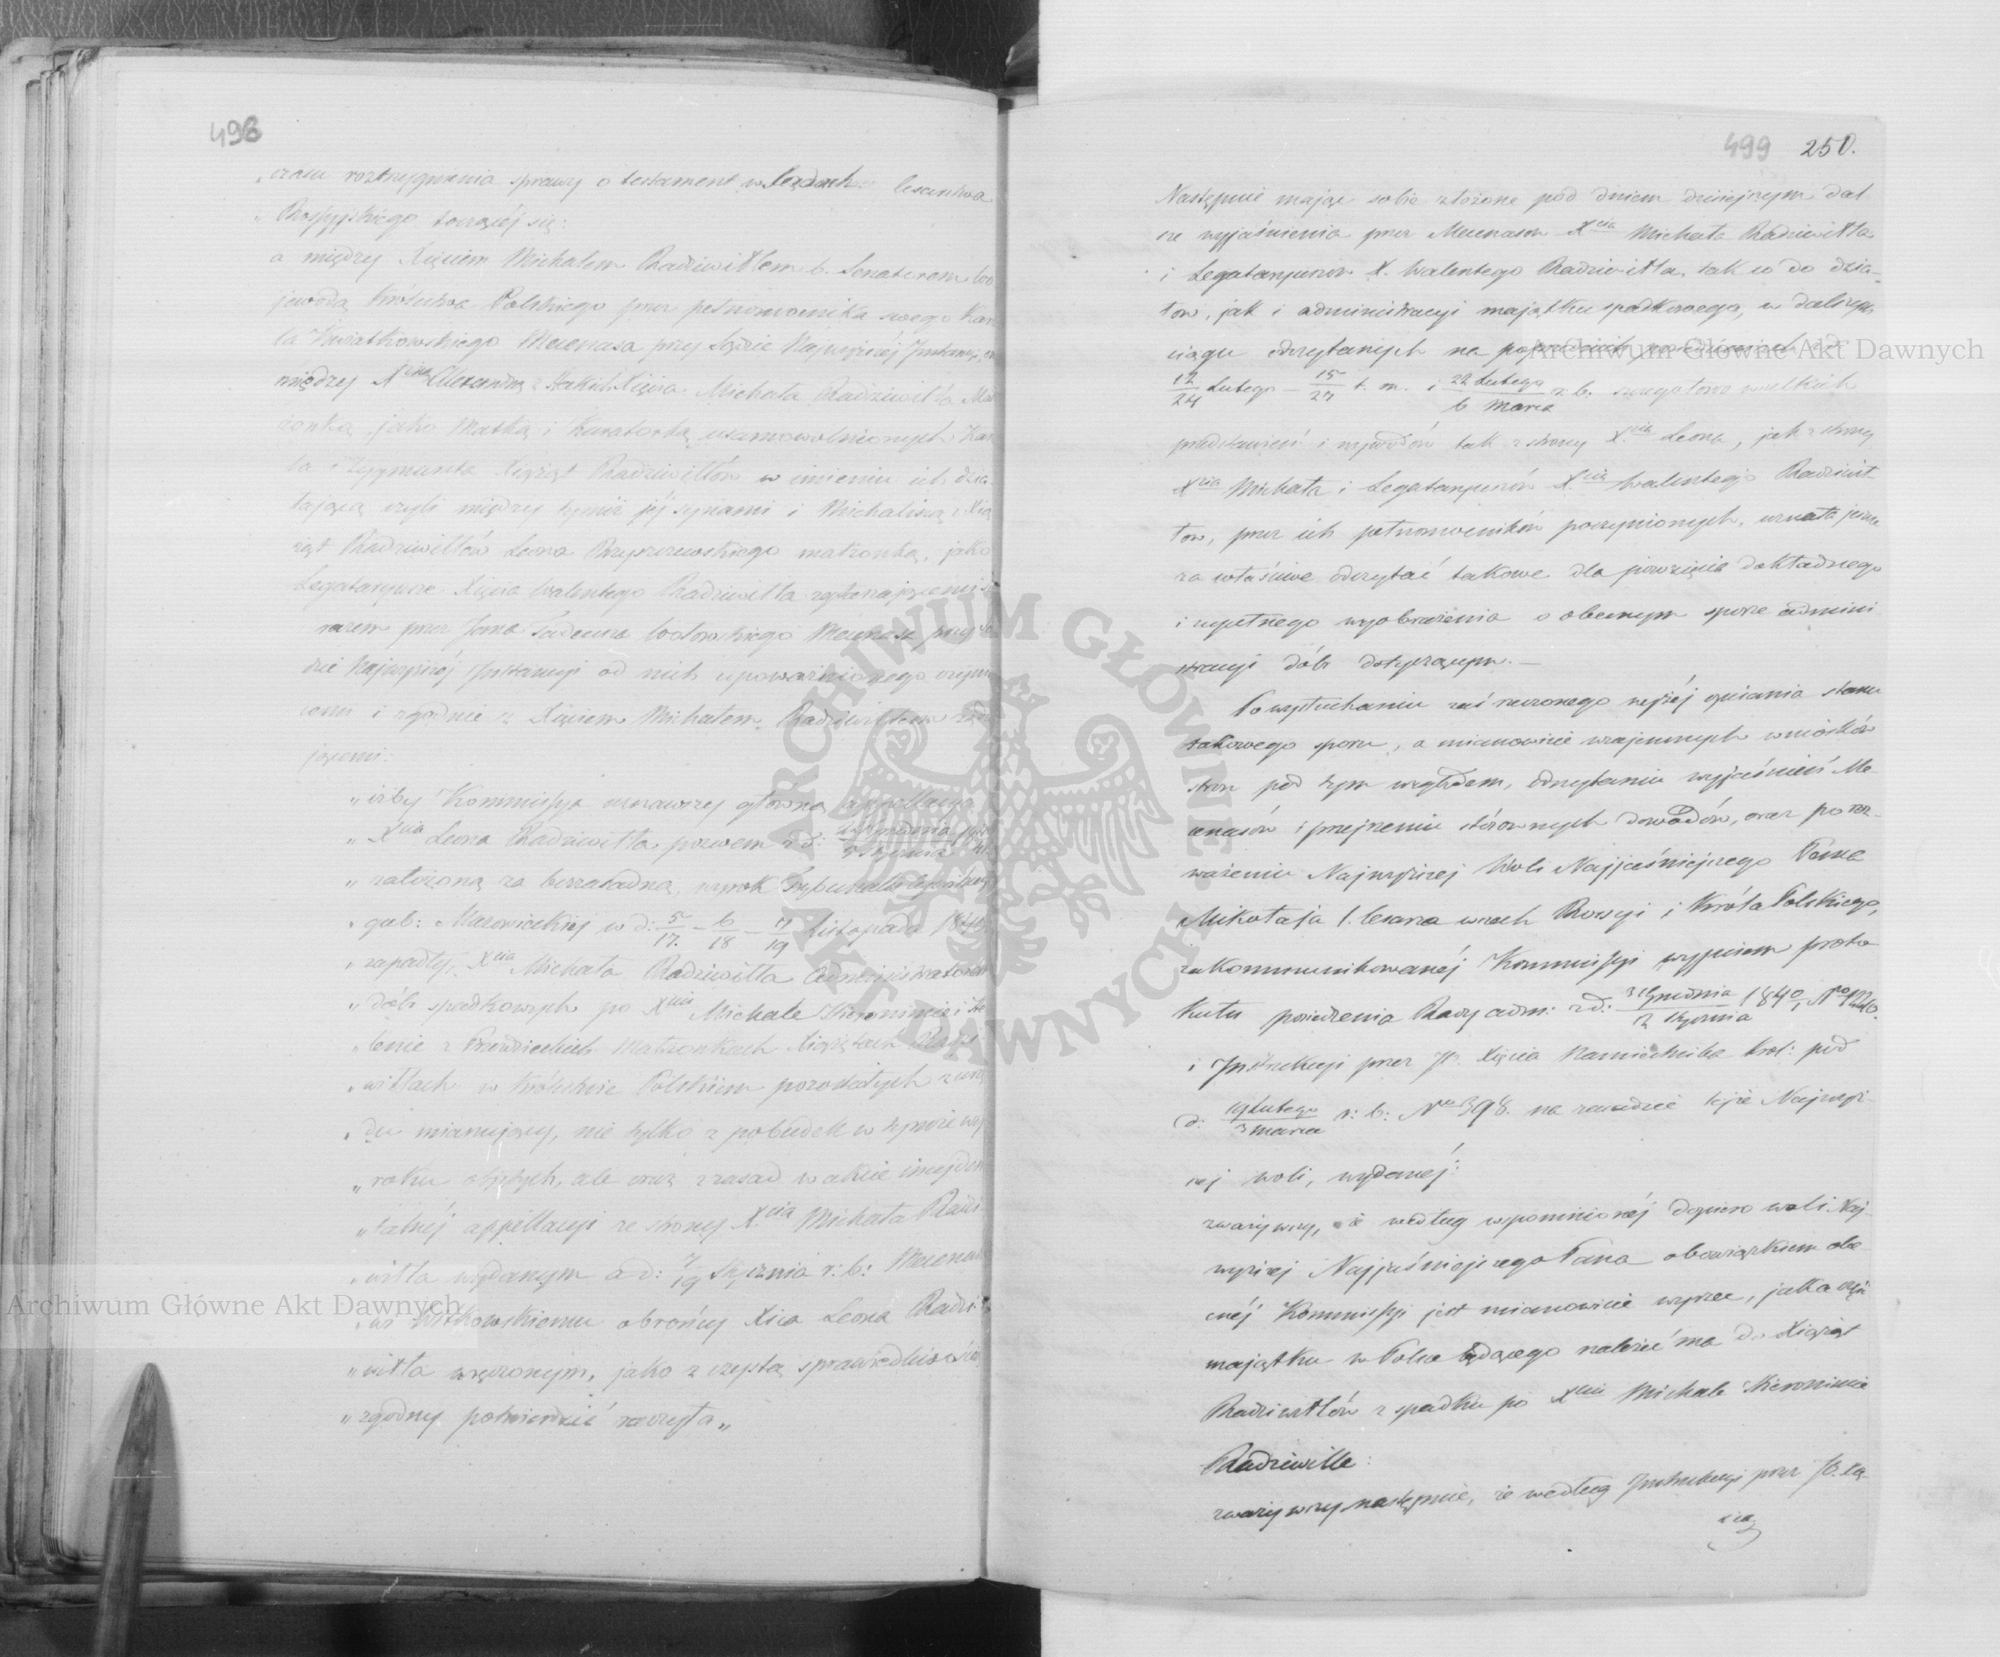 498
„czasu roztrzygnienia sprawy o testament w Sądach Cesarstwa
„Rossyjskiego toczącej się:
a między Xięciem Michałem Radziwiłłem b. Senatorem Wo
jewodą Królestwa Polskiego przez pełnomocnika swego Karo
la Kwiatkowskiego Mecenasa przy Sądzie Najwyższéj Instancyi, oraz
między Xciną Alexandrą z Steckich Xięcia Michała Radziwiłła Mał
żonką jako Matką i Kuratorką usamowolnionych Karo
la i Zygmunta Xiążąt Radziwiłłów w imieniu ich dzia
łającą czyli między tymiż jéj synami i Michaliną z Xią
żąt Radziwiłłów Leona Rzyszczewskiego małżonką, jako
Legataryusze Xięcia Walentego Radziwiłła zgłaszającemi się
razem przez Jana Tadeusza Wołowskiego Mecenasa przy Są
dzie Najwyższéj Instancyi od nich upoważnionego czynią
cemi i zgodnie z Xięciem Michałem Radziwiłłem żąda
jącemi:
„iżby Kommissya uznawszy główną appellacyą
„Xcia Leona Radziwiłła pozwem z d:
„założoną za bezzasadną, wyrok Trybunału Cywilnego
„gub: Mazowieckiéj w d: 5/17. – 6/18 – 7/19 Listopada 184
„zapadły, Xcia Michała Radziwiłła Administratorem
„dóbr spadkowych po Xciu Michale Hieronimie i He
„lenie z Przeździeckich Małżonkach Xiążętach Radzi
„wiłłach w Królestwie Polskiem pozostałych z urzę
„du mianujący, nie tylko z pobudek w tymże wy
„roku objętych, ale oraz z zasad w akcie incyden
„talnéj appellacyi ze strony Xcia Michała Radzi
„wiłła wydanym a d: 7/19 Stycznia r: b: Mecenaso
„wi Witkowskiemu obrońcy Xcia Leona Radzi
„wiłła wręczonym, jako z czystą sprawiedliwością
„zgodny potwierdzić raczyła„
499 250.
Następnie mając sobie złożone pod dniem dzisiejszym dal
sze wyjaśnienia przez Mecenasów Xcia Michała Radziwiłła
i Legataryuszów X. Walentego Radziwiłła, tak co do dzia–
łów, jak i administracyi majątku spadkowego, w dalszym
ciągu odczytanych na
12/24 Lutego – 15/27 t. m. i 22 Lutego/6 Marca r. b. szczegółowo wszelkich
przedstawień i wywodów tak z strony Xcia Leona, jak z strony
Xcia Michała i Legataryuszów Xcia Walentego Radziwił–
łów, przez ich pełnomocników poczynionych, uznała jeszcze
za właściwe odczytać takowe dla powzięcia dokładnego
i zupełnego wyobrażenia o obecnym sporze admini
stracyi dób dotyczącym. –
Po wysłuchaniu zaś rzeczonego wyżéj opisania stanu
takowego sporu, a mianowicie wzajemnych wniosków
stron pod tym względem, odczytaniu wyjaśnień Me–
cenasów i przejrzeniu stósownych dowodów, oraz po roz–
ważeniu Najwyższej Woli Najjaśniejszego Pana
Mikołaja I. Cesarza wszech Rossyi i Króla Polskiego,
zakommunikowanéj Kommissyi wypisem proto
kułu posiedzenia Rady adm: z d: 31 Grudnia/12 Stycznia 1840/1 No
i Instrukcyi przez JO. Xięcia Namiestnika Król: pod
d: 19 Lutego/3 Marca r: b: No 398. na zasadzie tejże Najwyż–
széj woli, wydanéj:
zważywszy, iż według wspomnionéj dopiero woli Naj–
wyższej Najjaśniejszego Pana obowiązkiem obe
cnéj Kommissyi jest mianowicie wyrzec, jaka część
majątku w Polsce będącego należéć ma do Xiążąt
Radziwiłłów z spadku po Xciu Michale Hieronimie
Radziwille:
zważywszy następnie, że według Instrukcyi przez JO. Xię–
cia